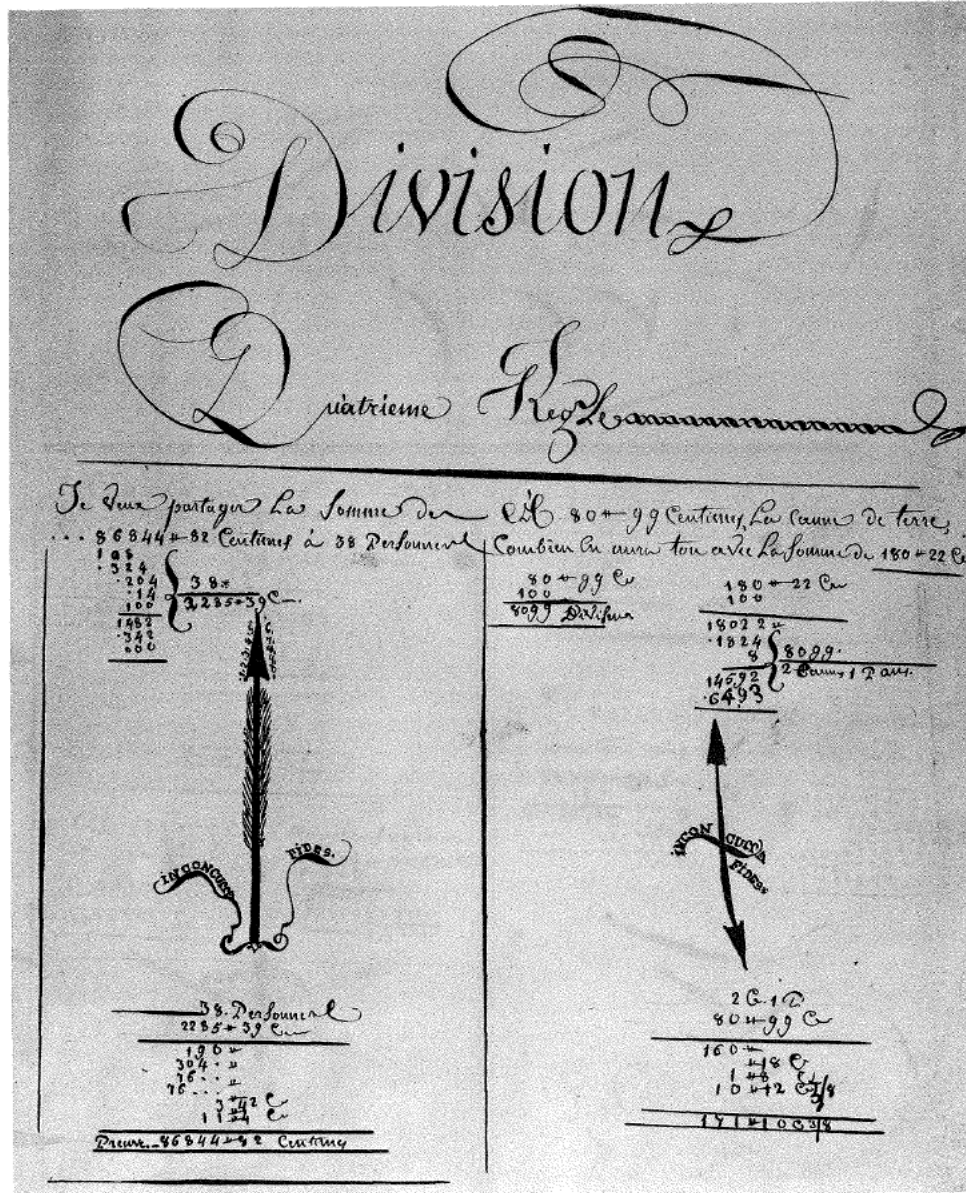 Division
Quatrieme Regle
Je Veux partager La Somme de
... 86844 # 82 Centimes à 38 Personnes
108
.324
.204
.14
100
1482
.342
000
38 #
2285 # 39 C
INCONCUSSA
FIDES.
38. Personnes
2285 # 39 C
190 #
304 . #
76 . . #
76 . . .
3 # 42 C
11 # 4 C
Preuve.. 86844 # 82 Centimes
80 # 99 Centimes, La canne de terre,
Combien En aura ton avec La Somme De 180 # 22 C
80 # 99 C
100
8099 Diviseur
180 # 22 C
100
18022 #
.1824
8
14592
.6493
8099.
2 Cannes 1 Pans.
INCON CUCCA
FIDES.
2 C. 1 P.
80 # 99 C
160 #
# 18 C
1 # 8 C
10 # 12 C 3/8
171 # 10 C 3/8